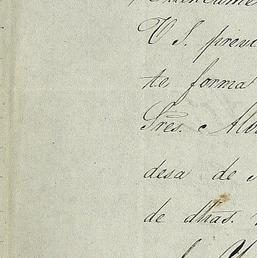 V S. preve
te forma
Sres. e Alv
desa de
de dhas.